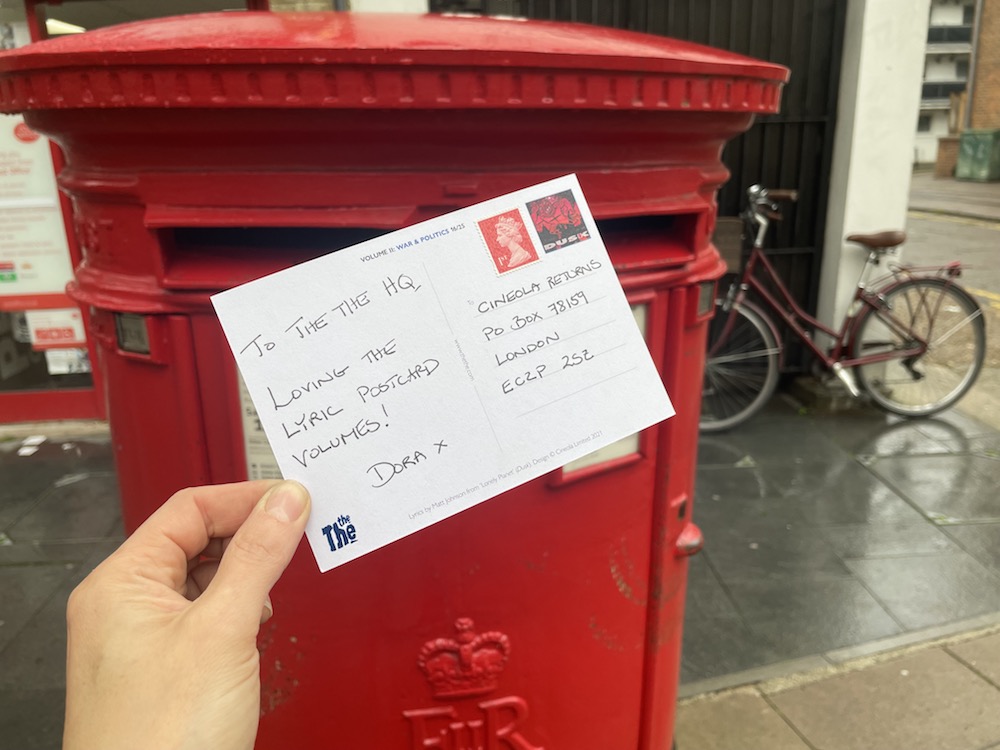 VOLUME II: WAR & POLITICS 16/25
TO THE THE HQ,
LOVING THE
LYRIC POSTCARD
VOLUMES!
DORA x
1st
DUSK
To
CINEOLA RETURNS
PO BOX 78159
LONDON
EC2P 2SZ
Lyrics by Matt Johnson from 'Lonely Planet' (Dusk). Design © Cineola Limited 2021
the
The
EIIR